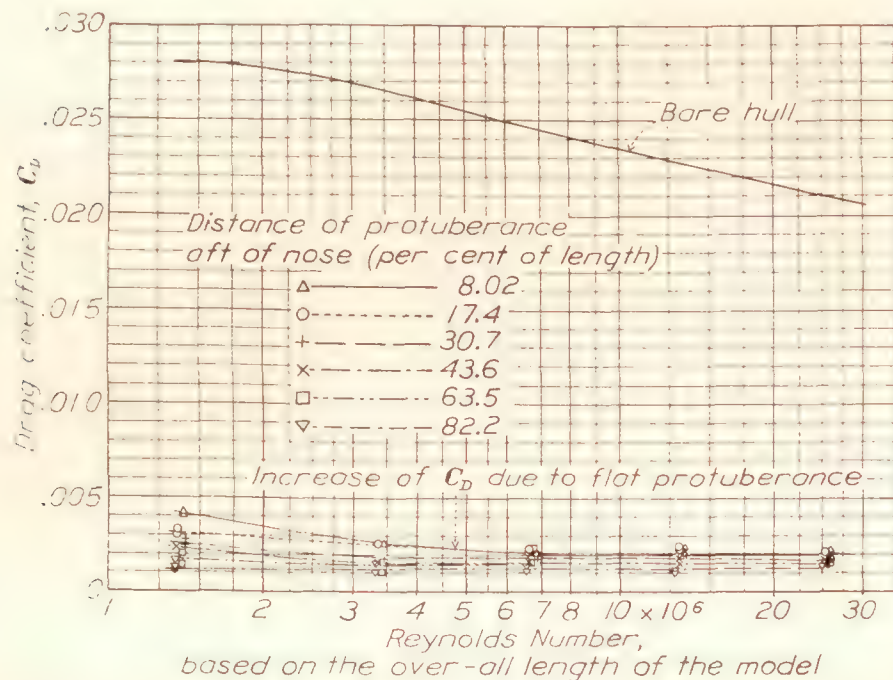 .030
.025
.020
.015
.010
.005
0
Drag coefficient, C_D
Bare hull
Distance of protuberance
aft of nose (per cent of length)
8.02
17.4
30.7
43.6
63.5
82.2
Increase of C_D due to flat protuberance
1 2 3 4 5 6 7 8 10 ×10⁶ 20 30
Reynolds Number,
based on the over-all length of the model